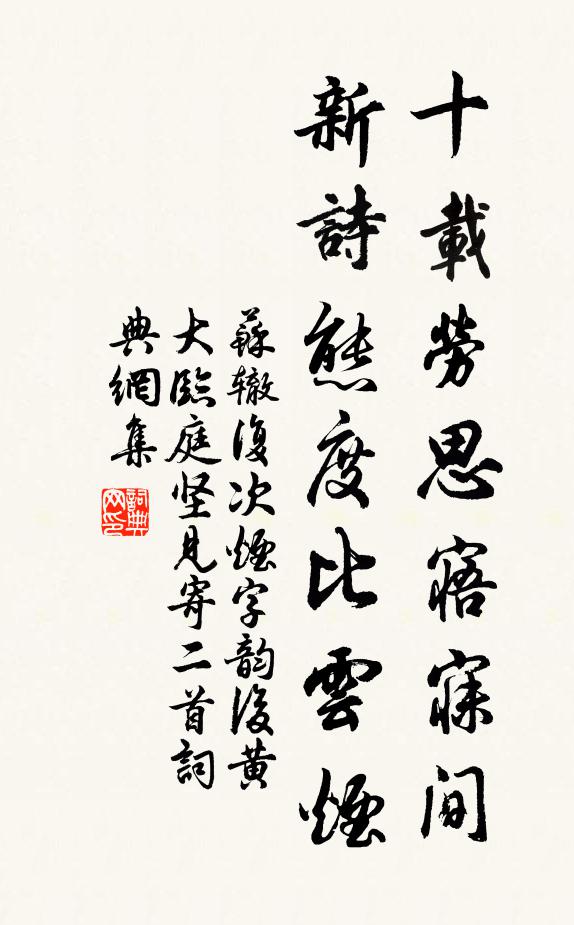 十載勞思寤寐间
新詩態度比雲煙
蘇辙復次煙字韵復黄
大臨庭坚見寄二首詞
典網集
詞典
网印